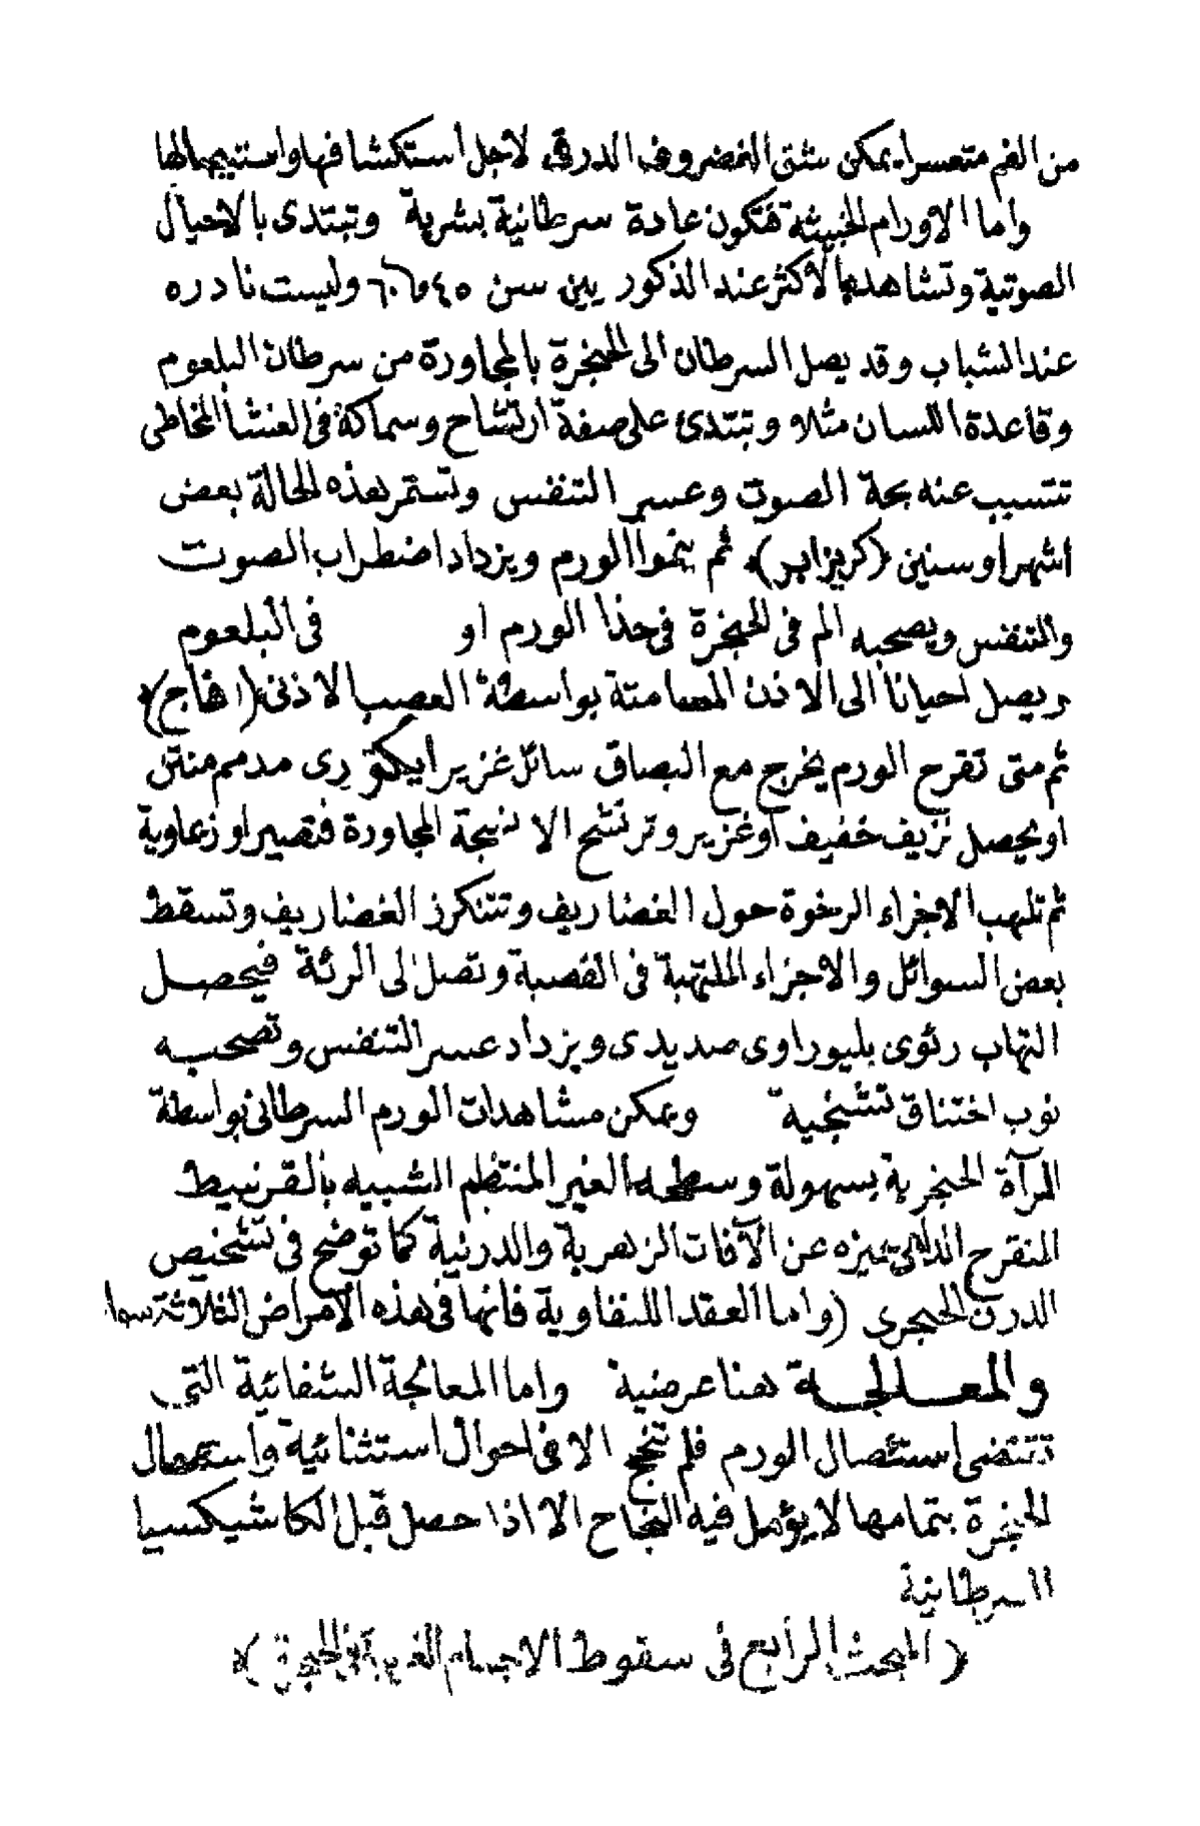 من الفم متعسرا يمكن شق الغضروف الدرقى لاجل استكشافها واستئصالها
واما الاورام الخبيثة فتكون عادة سرطانية بشرية وتبتدى بالاحبال
الصوتية وتشاهد بالاكثر عند الذكور بين سن ٤٥ و٦٠ وليست نادره
عند الشباب وقد يصل السرطان الى الحنجرة بالمجاورة من سرطان البلعوم
وقاعدة اللسان مثلا وتبتدئ على صفة ارتشاح وسماكة فى الغشا المخاطى
تتسبب عنه بحة الصوت وعسر التنفس وتستمر بهذه الحالة بعض
اشهر او سنين (كريزابر) ثم ينموا الورم ويزداد اضطراب الصوت
والتنفس ويصحبه الم فى الحنجرة فى حذا الورم او فى البلعوم
ويصل احيانا الى الاذن المسامتة بواسطة العصب الاذنى (افاج)
ثم متى تقرح الورم يخرج مع البصاق سائل غزير ايكورى مدمم منتن
او يحصل نزيف خفيف او غزير وترتشح الانسجة المجاورة فتصير اوزيماوية
ثم تلهب الاجزاء الرخوة حول الغضاريف وتتنكرز الغضاريف وتسقط
بعض السوائل والاجزاء الملتهبة فى القصبة وتصل الى الرئة فيحصل
التهاب رئوى بليوراوى صديدى ويزداد عسر التنفس وتصحبه
نوب اختناق تشنجية ويمكن مشاهدات الورم السرطانى بواسطة
المرآة الحنجرية بسهولة وسطحه الغير المنتظم الشبيه بالقرنبيط
المتقرح الذى يميزه عن الآفات الزهرية والدرنية كما توضح فى تشخيص
الدرن الحنجرى (واما العقد اللنفاوية فانها فى هذه الامراض الثلاثة سوا
والمعالجة هنا عرضية واما المعالجة الشفائية التى
تقتضى استئصال الورم فلم تنجح الا فى احوال استثنائية واستعمال
الحنجرة بتمامها لا يؤمل فيه النجاح الا اذا حصل قبل الكاشيكسيا
السرطانية
(المبحث الرابع فى سقوط الاجسام الغريبة فى الحنجرة)